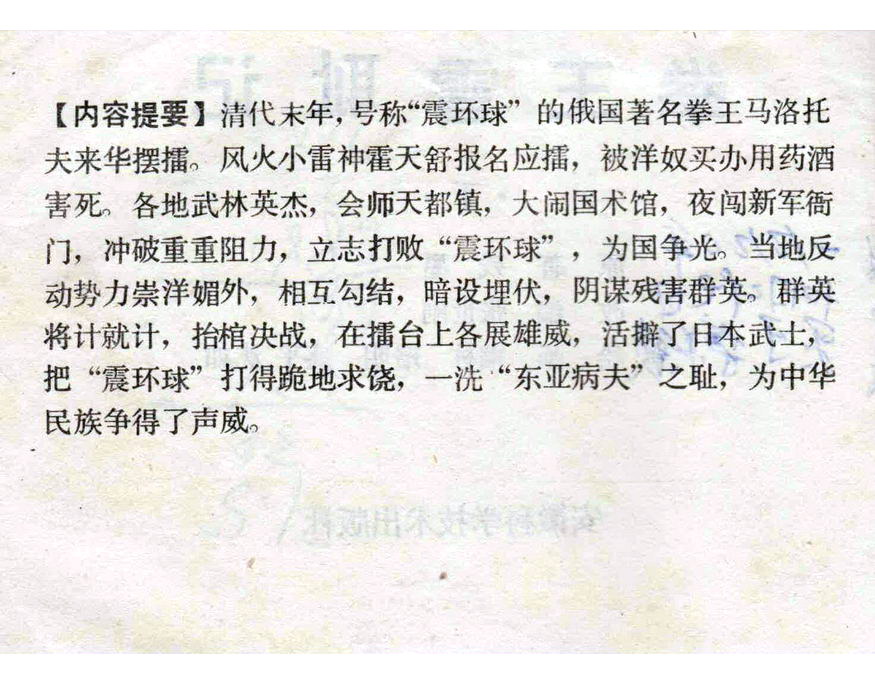 【内容提要】清代末年，号称“震环球”的俄国著名拳王马洛托
夫来华摆擂。风火小雷神霍天舒报名应擂，被洋奴买办用药酒
害死。各地武林英杰，会师天都镇，大闹国术馆，夜闯新军衙
门，冲破重重阻力，立志打败“震环球”，为国争光。当地反
动势力崇洋媚外，相互勾结，暗设埋伏，阴谋残害群英。群英
将计就计，抬棺决战，在擂台上各展雄威，活擗了日本武士，
把“震环球”打得跪地求饶，一洗“东亚病夫”之耻，为中华
民族争得了声威。
安徽科学技术出版社